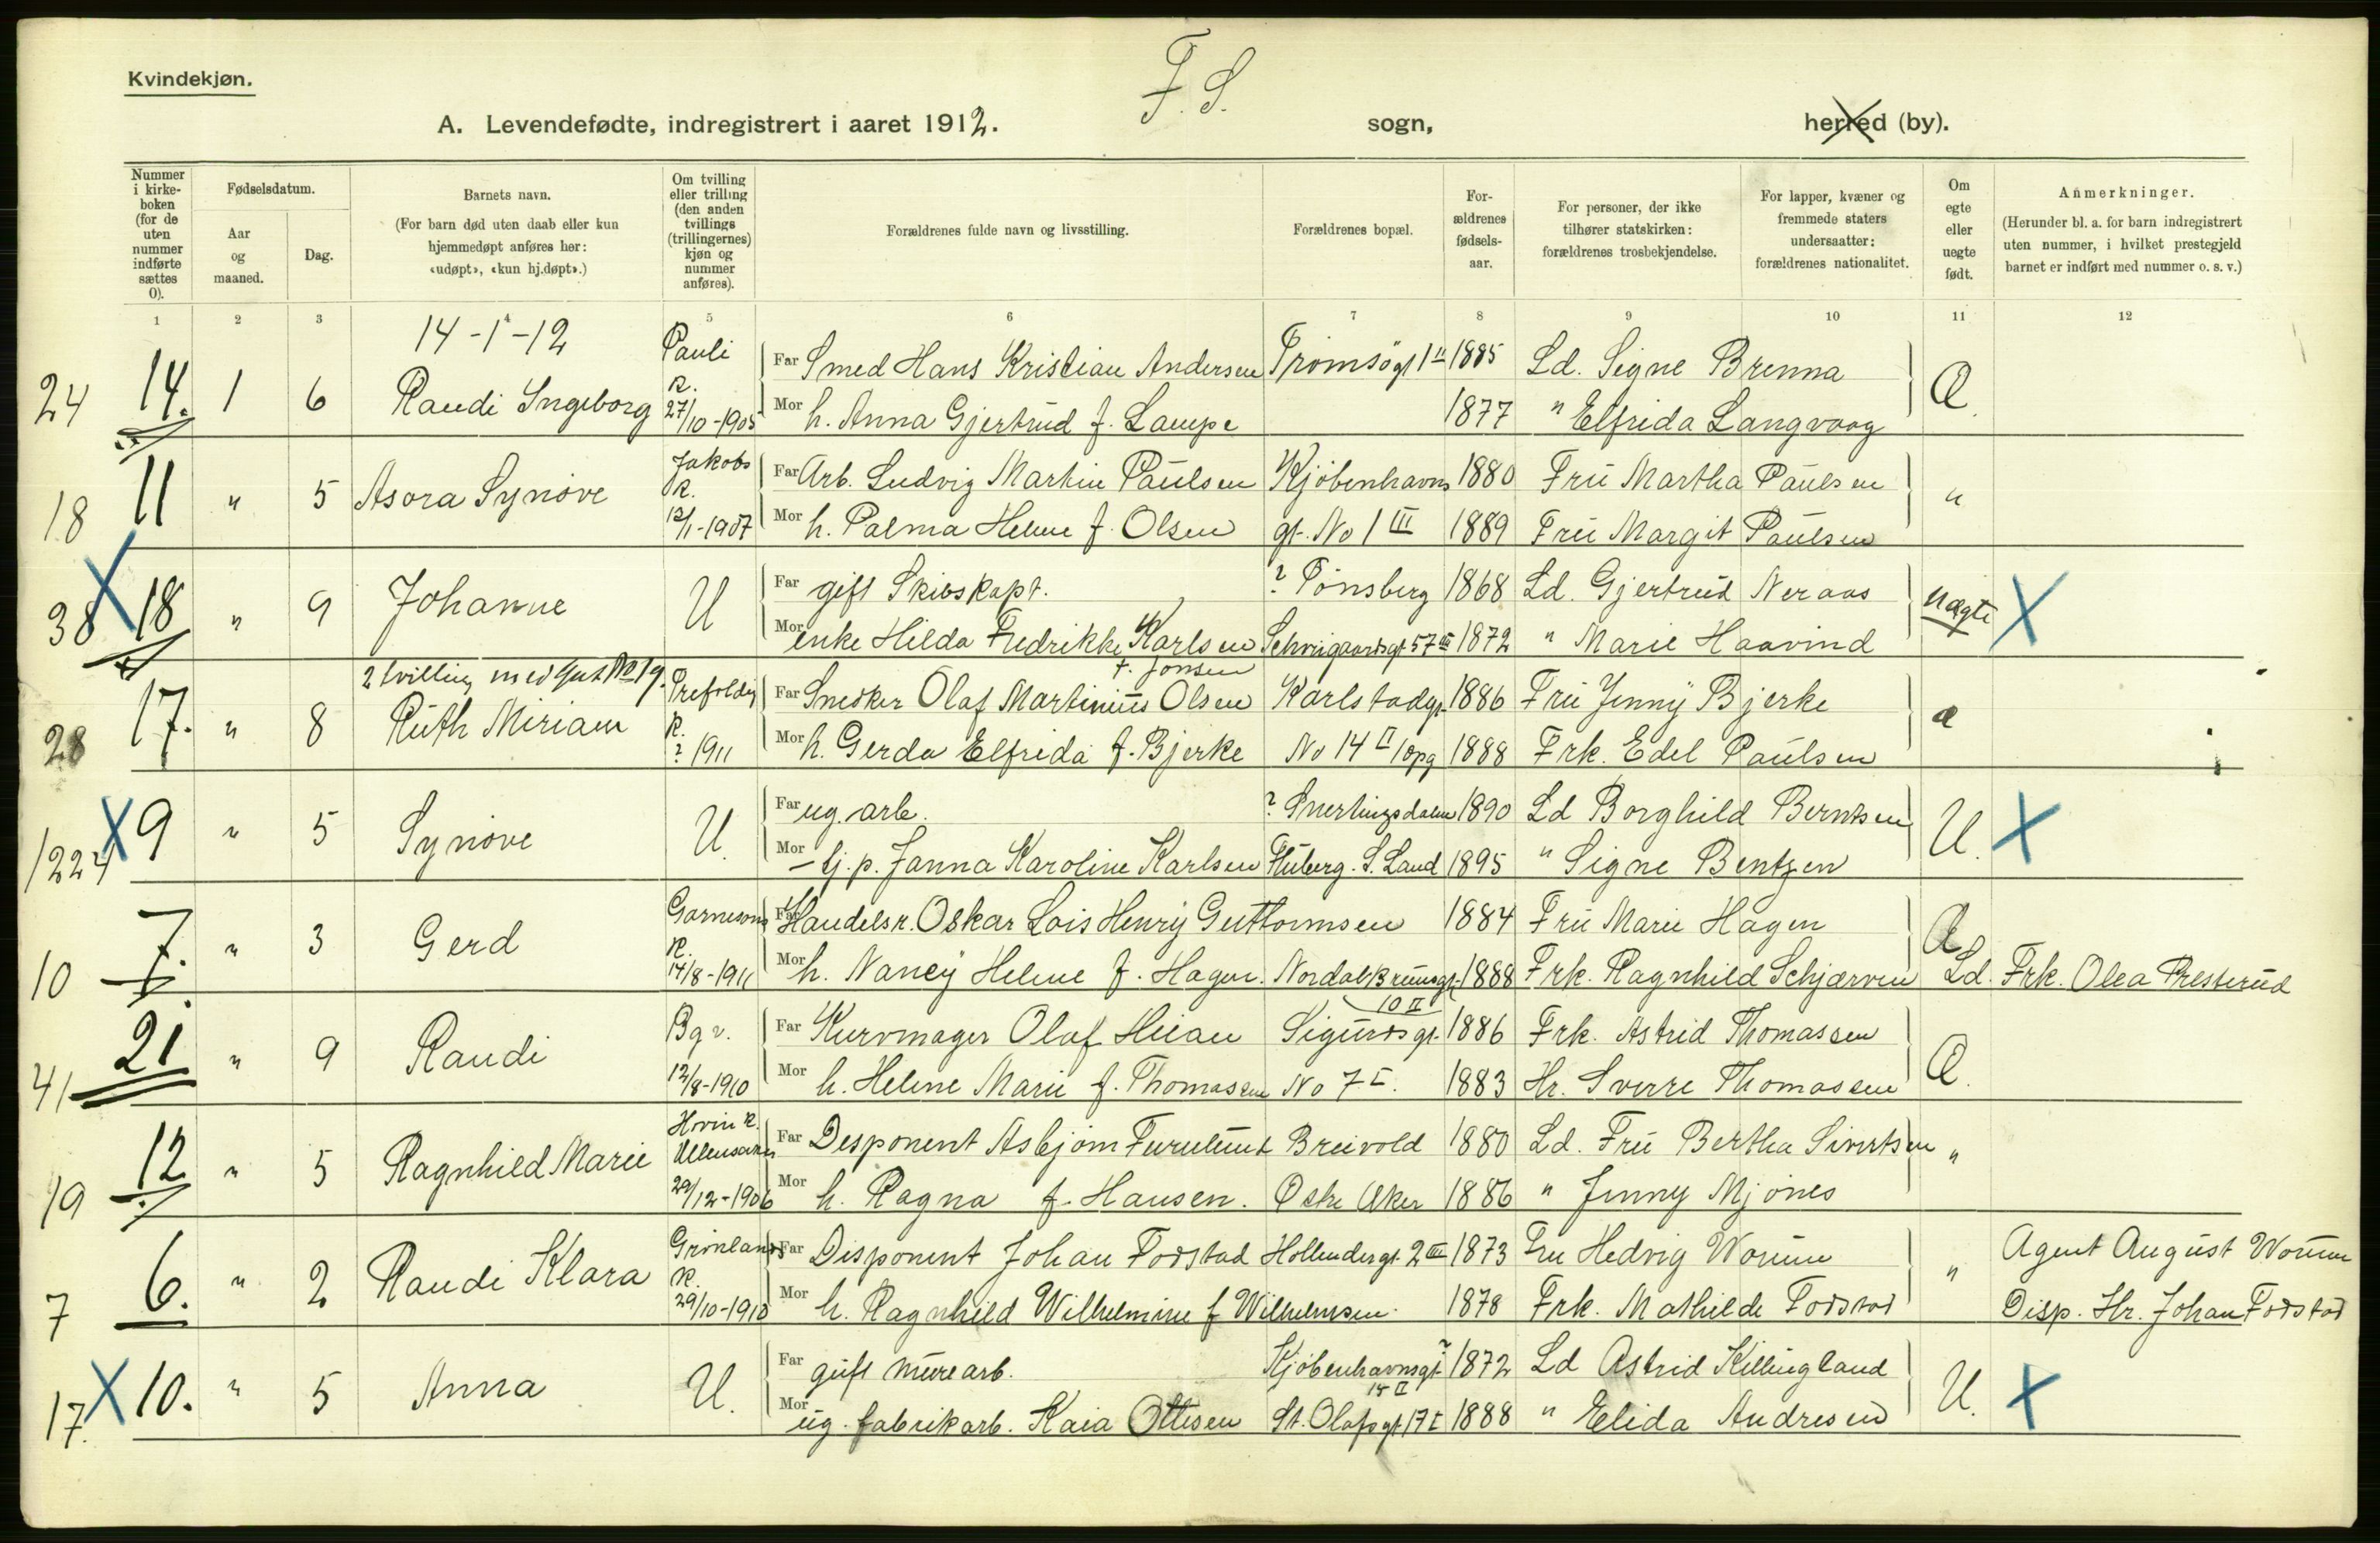 Kvindekjøn.
F. S.
A. Levendefødte, indregistrert i aaret 1912. sogn, herred (by).
Nummer i kirke-boken (for de uten nummer indførte sættes 0).
Fødselsdatum.
Aar og maaned.
Dag.
Barnets navn.
(For barn død uten daab eller kun hjemmedøpt anføres her: «udøpt», «kun hj.døpt».)
Om tvilling eller trilling (den anden tvillings (trillingernes) kjøn og nummer anføres).
Forældrenes fulde navn og livsstilling.
Forældrenes bopæl.
For-ældrenes fødsels-aar.
For personer, der ikke tilhører statskirken: forældrenes trosbekjendelse.
For lapper, kvæner og fremmede staters undersaatter: forældrenes nationalitet.
Om egte eller uegte født.
Anmerkninger.
(Herunder bl. a. for barn indregistrert uten nummer, i hvilket prestegjeld barnet er indført med nummer o. s. v.)
1 2 3 4 5 6 7 8 9 10 11 12
14-1-12
24 14. 1 6 Randi Ingeborg Pauli K. 27/10-1905
Far Smed Hans Kristian Andersen Tromsögt 1 II 1885 Ld. Signe Brenna Æ.
Mor h. Anna Gjertrud f. Lampe 1877 " Elfrida Langvaag
18 11 " 5 Asora Synöve Jakobs K. 12/1-1907
Far Arb. Ludvig Martin Paulsen Kjöbenhavns 1880 Frü Martha Paulsen "
Mor h. Palma Helene f. Olsen gt. No 1 III 1889 Frü Margit Paulsen
38 X 18 " 9 Johanne U
Far gift Skibskapt. ? Tönsberg 1868 Ld. Gjertrud Neraas uægte X
Mor enke Hilda Fredrikke Karlsen f. Jonsen Schweigaardsgt 57 III 1872 " Marie Haavind
2 tvilling med gut No 19.
28 17. " 8 Ruth Miriam Trefoldig K. ? 1911
Far Snedker Olaf Martinius Olsen Karlstadgt. 1886 Frü Jenny Bjerke æ
Mor h. Gerda Elfrida f. Bjerke No 14 II 1 opg 1888 Frk. Edel Paulsen
22 X 9 " 5 Synöve U.
Far ug. arb. ? Snertingsdalen 1890 Ld Borghild Berntsen U. X
Mor – tj.p. Janna Karoline Karlsen Fluberg. S. Land 1895 " Signe Bentzen
10 7. " 3 Gerd Garnisons K. 14/8-1911
Far Handelsr. Oskar Lois Henry Guttormsen 1884 Frü Marie Hagen Æ
Mor h. Nancy Helene f. Hagen. Nordal Brunsgt. 10 II 1888 Frk. Ragnhild Schjærven Ld. Frk. Olea Presterud
41 21 " 9 Randi 12/8-1910
Far Kurvmager Olaf Huan Sigurdsgt. 1886 Frk. Astrid Thomassen Æ.
Mor h. Helene Marie f. Thomassen No 7 I. 1883 Hr. Sverre Thomassen
19 12 " 5 Ragnhild Marie Hovin K. Ullensaker 29/12-1906
Far Desponent Asbjörn Furulund Breivold 1880 Ld. Frü Bertha Sivertsen "
Mor h. Ragna f. Hansen. Östre Aker 1886 " Jenny Mjönes
7 6. " 2 Randi Klara Grönlands K. 29/10-1910
Far Disponent Johan Fodstad Hollendergt. 2 III 1873 Fru Hedvig Worum " Agent August Worum
Mor h. Ragnhild Wilhelmine f Wilhelmsen. 1878 Frk. Mathilde Fodstad Disp. Hr. Johan Fodstad
17. X 10. " 5 Anna U.
Far gift murearb. Kjöbenhavnsgt. 15 II ? 1872 Ld Astrid Killingland U. X
Mor ug. fabrikarb. Kaia Ottesen St. Olafsgt 17 I 1888 " Elida Andresen